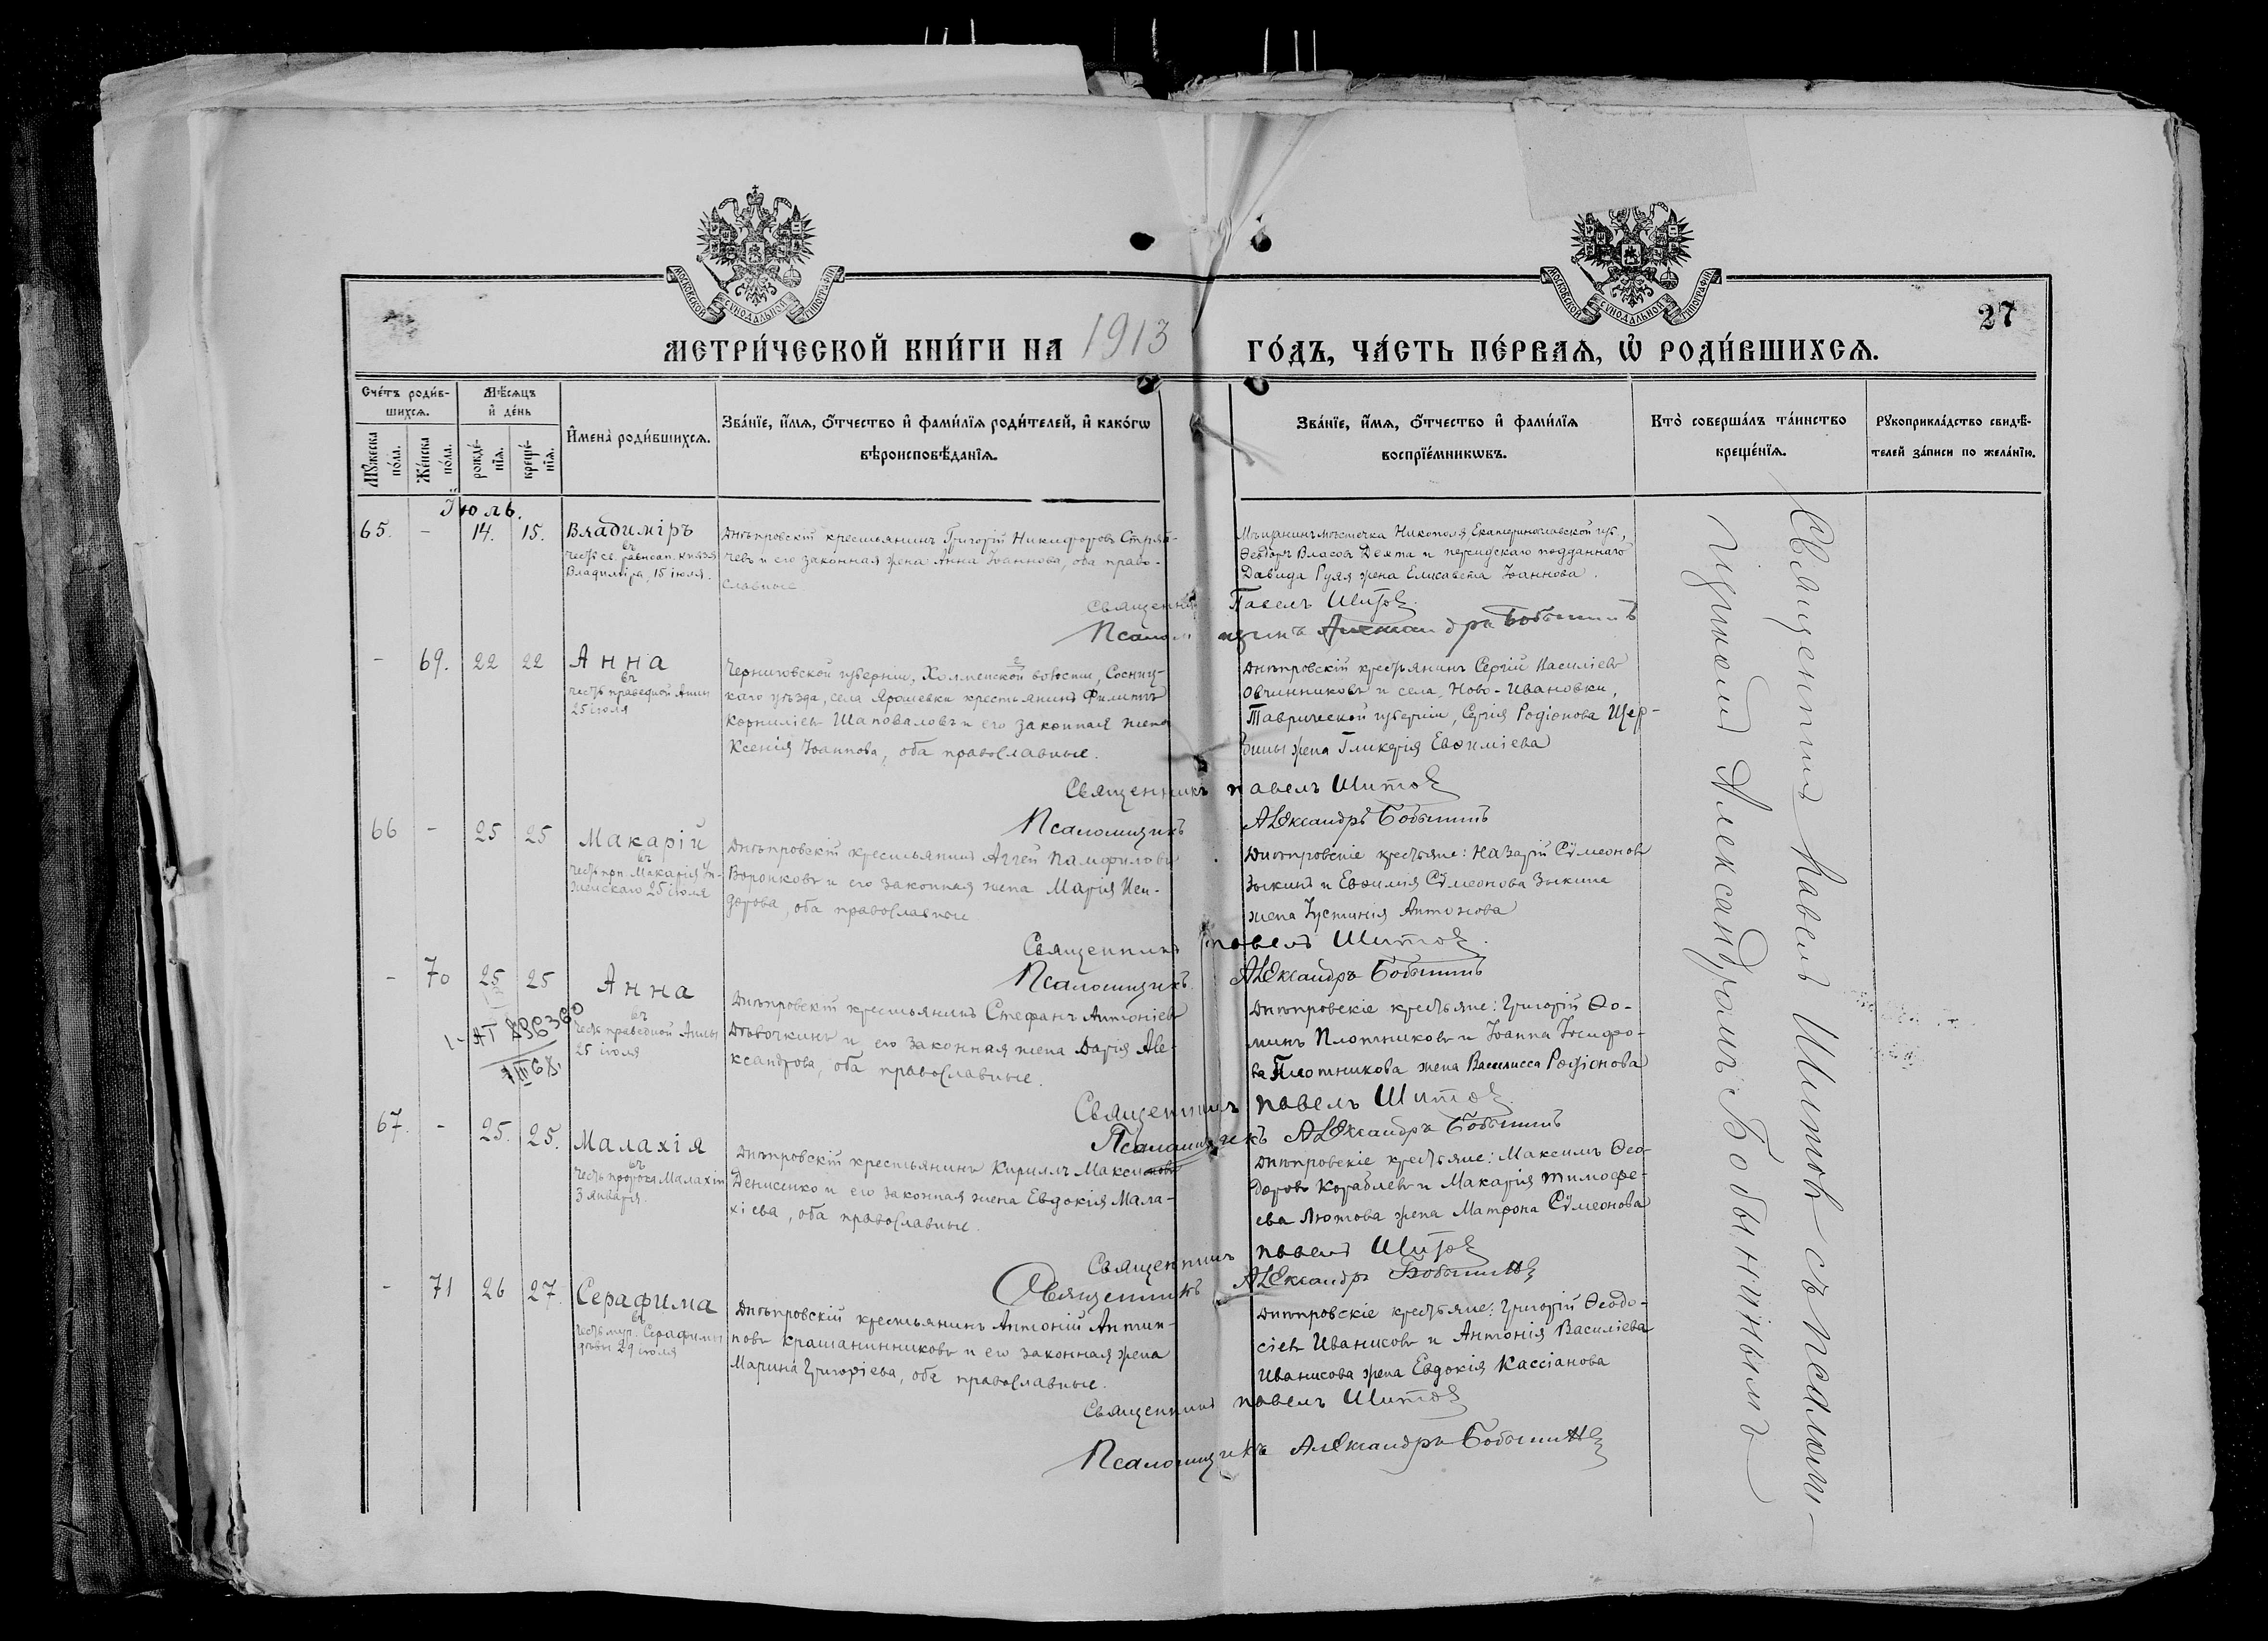 МОСКОВСКОЙ СѴНОДАЛЬНОЙ ТИПОГРАФІИ
МОСКОВСКОЙ СѴНОДАЛЬНОЙ ТИПОГРАФІИ
27
МЕТРИ́ЧЕСКОЙ КНИ́ГИ НА 1913 ГО́ДЪ, ЧА́СТЬ ПЕ́РВАѦ, Ѡ҆ РОДИ́ВШИХСѦ.
Сче́тъ роди́в-
шихсѧ.
Мѣ́сѧцъ
и҆ де́нь
Мꙋ́жеска
по́ла.
Же́нска
по́ла.
рожде́-
нїѧ.
креще́-
нїѧ.
И҆мена̀ роди́вшихсѧ.
Зва́нїе, и҆́мѧ, ѻ҆́тчество и҆ фами́лїѧ роди́телей, и҆ како́гѡ
вѣроисповѣ́данїѧ.
Зва́нїе, и҆́мѧ, ѻ҆́тчество и҆ фами́лїѧ
воспрїе́мникѡвъ.
Кто̀ соверша́лъ та́инство
креще́нїѧ.
Рꙋкоприкла́дство свидѣ́-
телей за́писи по жела́нїю.
Іюль.
65. - 14. 15. Владиміръ
въ
честь св. равноап. князя
Владиміра, 15 іюля.
Днѣпровскій крестьянинъ Григорій Никифоровъ
чевъ и его законная жена Анна Іоаннова, оба право-
славные
Мѣщанинъ мѣстечка Никополя Екатеринославской губ,
Ѳеодоръ Власовъ и персидскаго подданнаго
Давида жена Елисавета Іоаннова.
Священникъ Павелъ Шитовъ
Псаломщикъ Александръ Бобынинъ
- 69. 22 22 Анна
въ
честь праведной Анны
25 іюля
Черниговской губерніи, Холменской волости, Сосниц-
каго уѣзда, села Ярошевки крестьянинъ Филиппъ
Корниліевъ Шаповаловъ и его законная жена
Ксенія Іоаннова, оба православные.
Днѣпровскій крестьянинъ Сергій Василіевъ
Овчинниковъ и села, Ново-Ивановки,
Таврической губерніи, Сергія Родіонова Щер-
бины жена Гликерія Евѳиміева
Священникъ Павелъ Шитовъ
Псаломщикъ Александръ Бобынинъ
66 - 25 25 Макарій
въ
честь прп. Макарія Ун-
женскаго 25 іюля
Днѣпровскій крестьянинъ Аггей Памфиловъ
Воронковъ и его законная жена Марія Иси-
дорова, оба православные
Днѣпровскіе крестьяне: Назарій Сѵмеоновъ
Зыкинъ и Евѳимія Сѵмеонова Зыкина
жена Іустинія Антонова
Священникъ Павелъ Шитовъ.
Псаломщикъ Александръ Бобынинъ
- 70 25 25 Анна
въ
честь праведной Анны
25 іюля
Днѣпровскій крестьянинъ Стефанъ Антоніевъ
Дѣвочкинъ и его законная жена Дарія Але-
ксандрова, оба православные.
Днѣпровскіе крестьяне: Григорій Ѳо-
минъ Плотниковъ и Іоанна Іосифо-
ва Плотникова жена Василисса Родіонова
Священникъ Павелъ Шитовъ
Псаломщикъ Александръ Бобынинъ
67. - 25. 25. Малахія
въ
честь пророка Малахіи
3 января.
Днѣпровскій крестьянинъ Кириллъ Максимовъ
Денисенко и его законная жена Евдокія Мала-
хіева, оба православные.
Днѣпровскіе крестьяне: Максимъ Ѳео-
доровъ Кораблевъ и Макарія Тимофе-
ева Лютова жена Матрона Сѵмеонова
Священникъ Павелъ Шитовъ
Священникъ Александръ Бобынинъ
- 71 26 27. Серафима
въ
честь муч. Серафимы
дѣвы 29 іюля
Днѣпровскій крестьянинъ Антоній Антип-
повъ Крашанинниковъ и его законная жена
Марина Григоріева, оба православные.
Днѣпровскіе крестьяне: Григорій Ѳеодо-
сіевъ Иванисовъ и Антонія Василіева
Иванисова жена Евдокія Кассіанова
Священникъ Павелъ Шитовъ
Псаломщикъ Александръ Бобынинъ
Священникъ Павелъ Шитовъ съ псалом-
щикомъ Александромъ Бобынинымъ